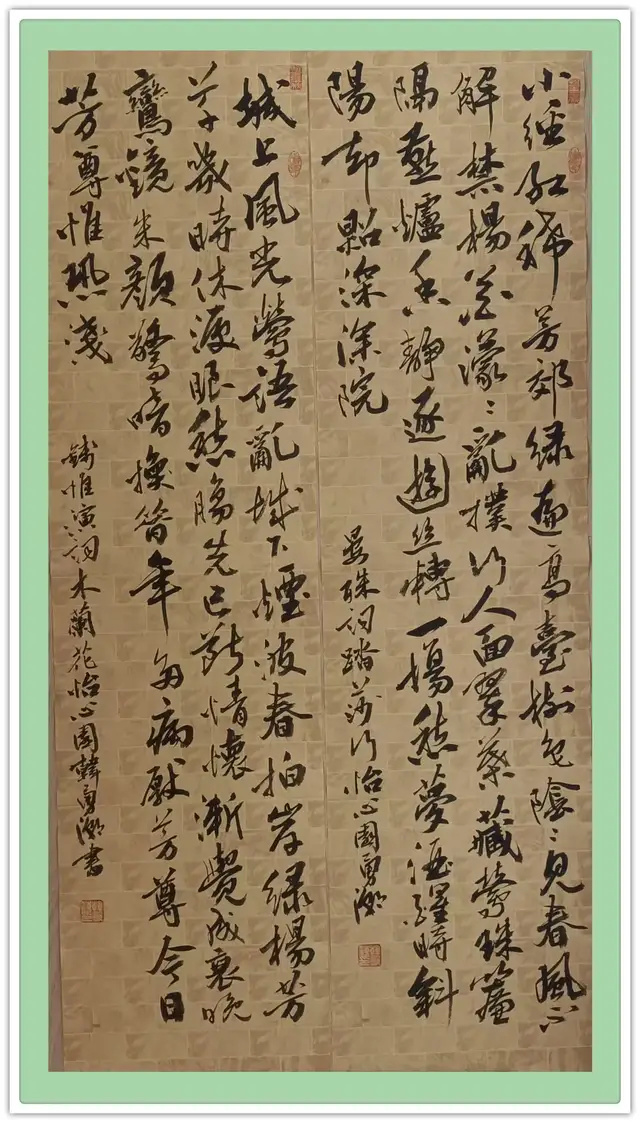 小徑紅稀芳郊緑遍高臺樹色陰〻見春風不
解禁楊花濛〻亂撲行人面翠葉藏鶯珠簾
隔燕爐香靜逐遊絲轉一場愁夢酒醒時斜
陽却照深深院
晏殊詞踏莎行怡心園勇
城上風光鶯語亂城下煙波春拍岸緑楊芳
草幾時休淚眼愁腸先已斷情懷漸覺成衰晚
鸞鏡朱顏驚暗換昔年多病厭芳尊今日
芳尊惟恐淺
錢惟演詞木蘭花怡心園韓勇書